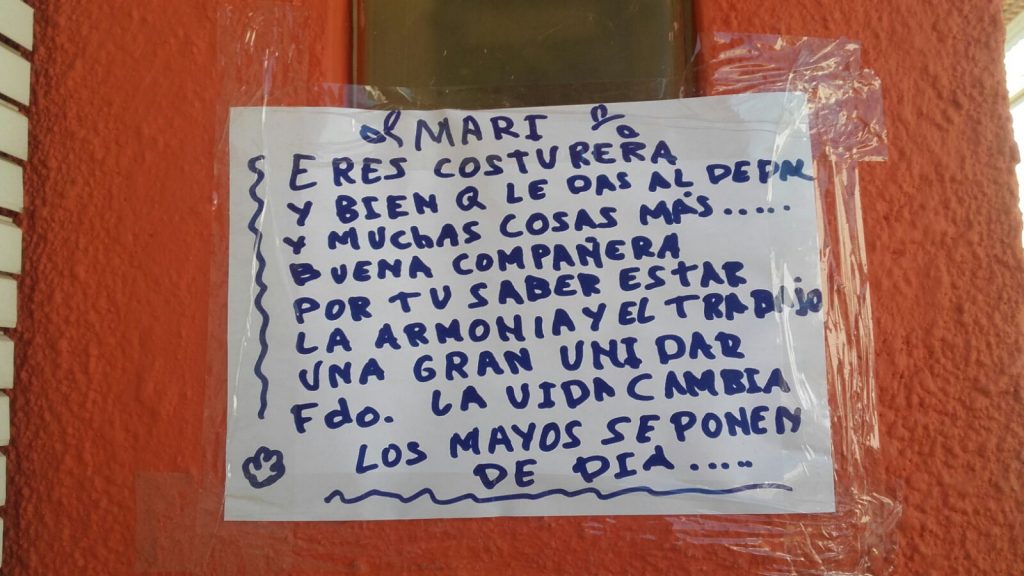 MARI
ERES COSTURERA
Y BIEN Q LE DAS AL DEDAL
Y MUCHAS COSAS MÁS.....
BUENA COMPAÑERA
POR TU SABER ESTAR
LA ARMONIA Y EL TRABAJO
UNA GRAN UNIDAD
Fdo. LA VIDA CAMBIA
LOS MAYOS SE PONEN
DE DIA.....